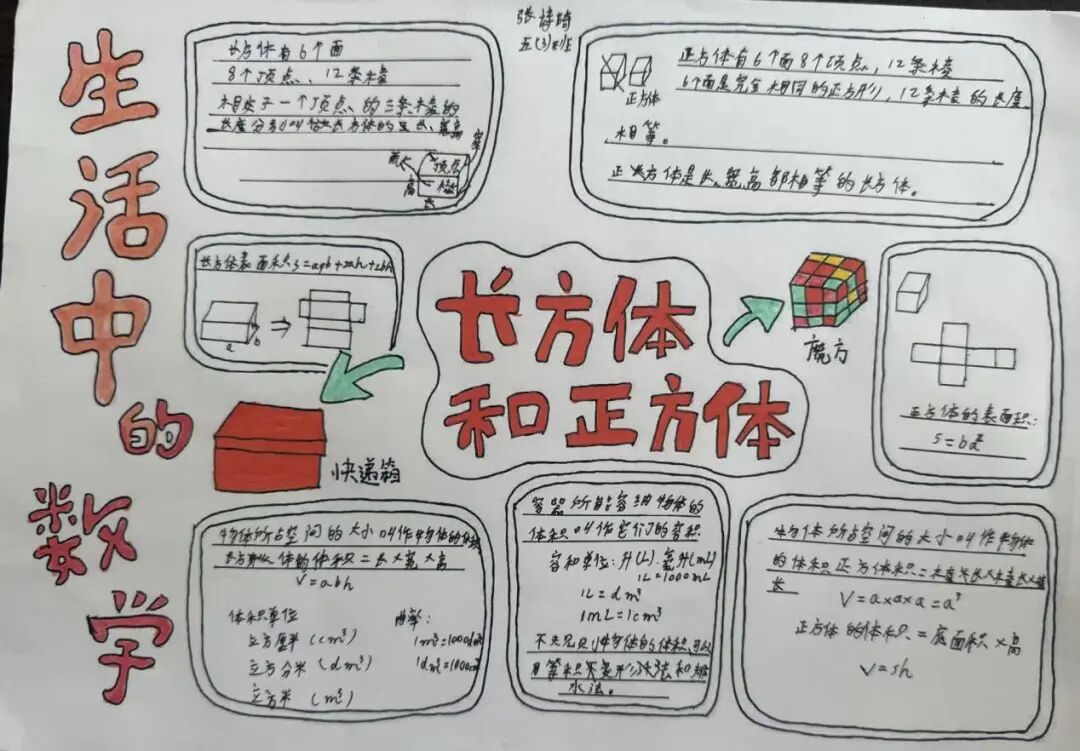 生活中的
数学
张诗琦
五(3)班
长方体有6个面
8个顶点、12条棱
相交于一个顶点的三条棱的
长度分别叫做长方体的长、宽、高
顶点
棱
高
长
正方体
正方体有6个面8个顶点,12条棱
6个面是完全相同的正方形,12条棱的长度
相等。
正方体是长、宽、高都相等的长方体。
长方体表面积:S=2ab+2ah+2bh
a
b
长方体
和正方体
魔方
快递箱
正方体的表面积:
物体所占空间的大小叫作物体的体积
体的体积=长×宽×高
V=abh
体积单位
立方厘米 (cm³)
立方分米 (dm³)
立方米 (m³)
1m³=1000dm³
1dm³=1000cm³
容器所能容纳物体的
体积叫作它们的容积
容积单位:升(L).毫升(mL)
1L=1000mL
1L=dm³
1mL=1cm³
不规则物体的体积,可以
用等积变形法和排
水法。
物体所占空间的大小叫作物体
的体积正方体体积=棱长×棱长×棱
长
V=a×a×a=a³
正方体的体积=底面积×高
V=sh